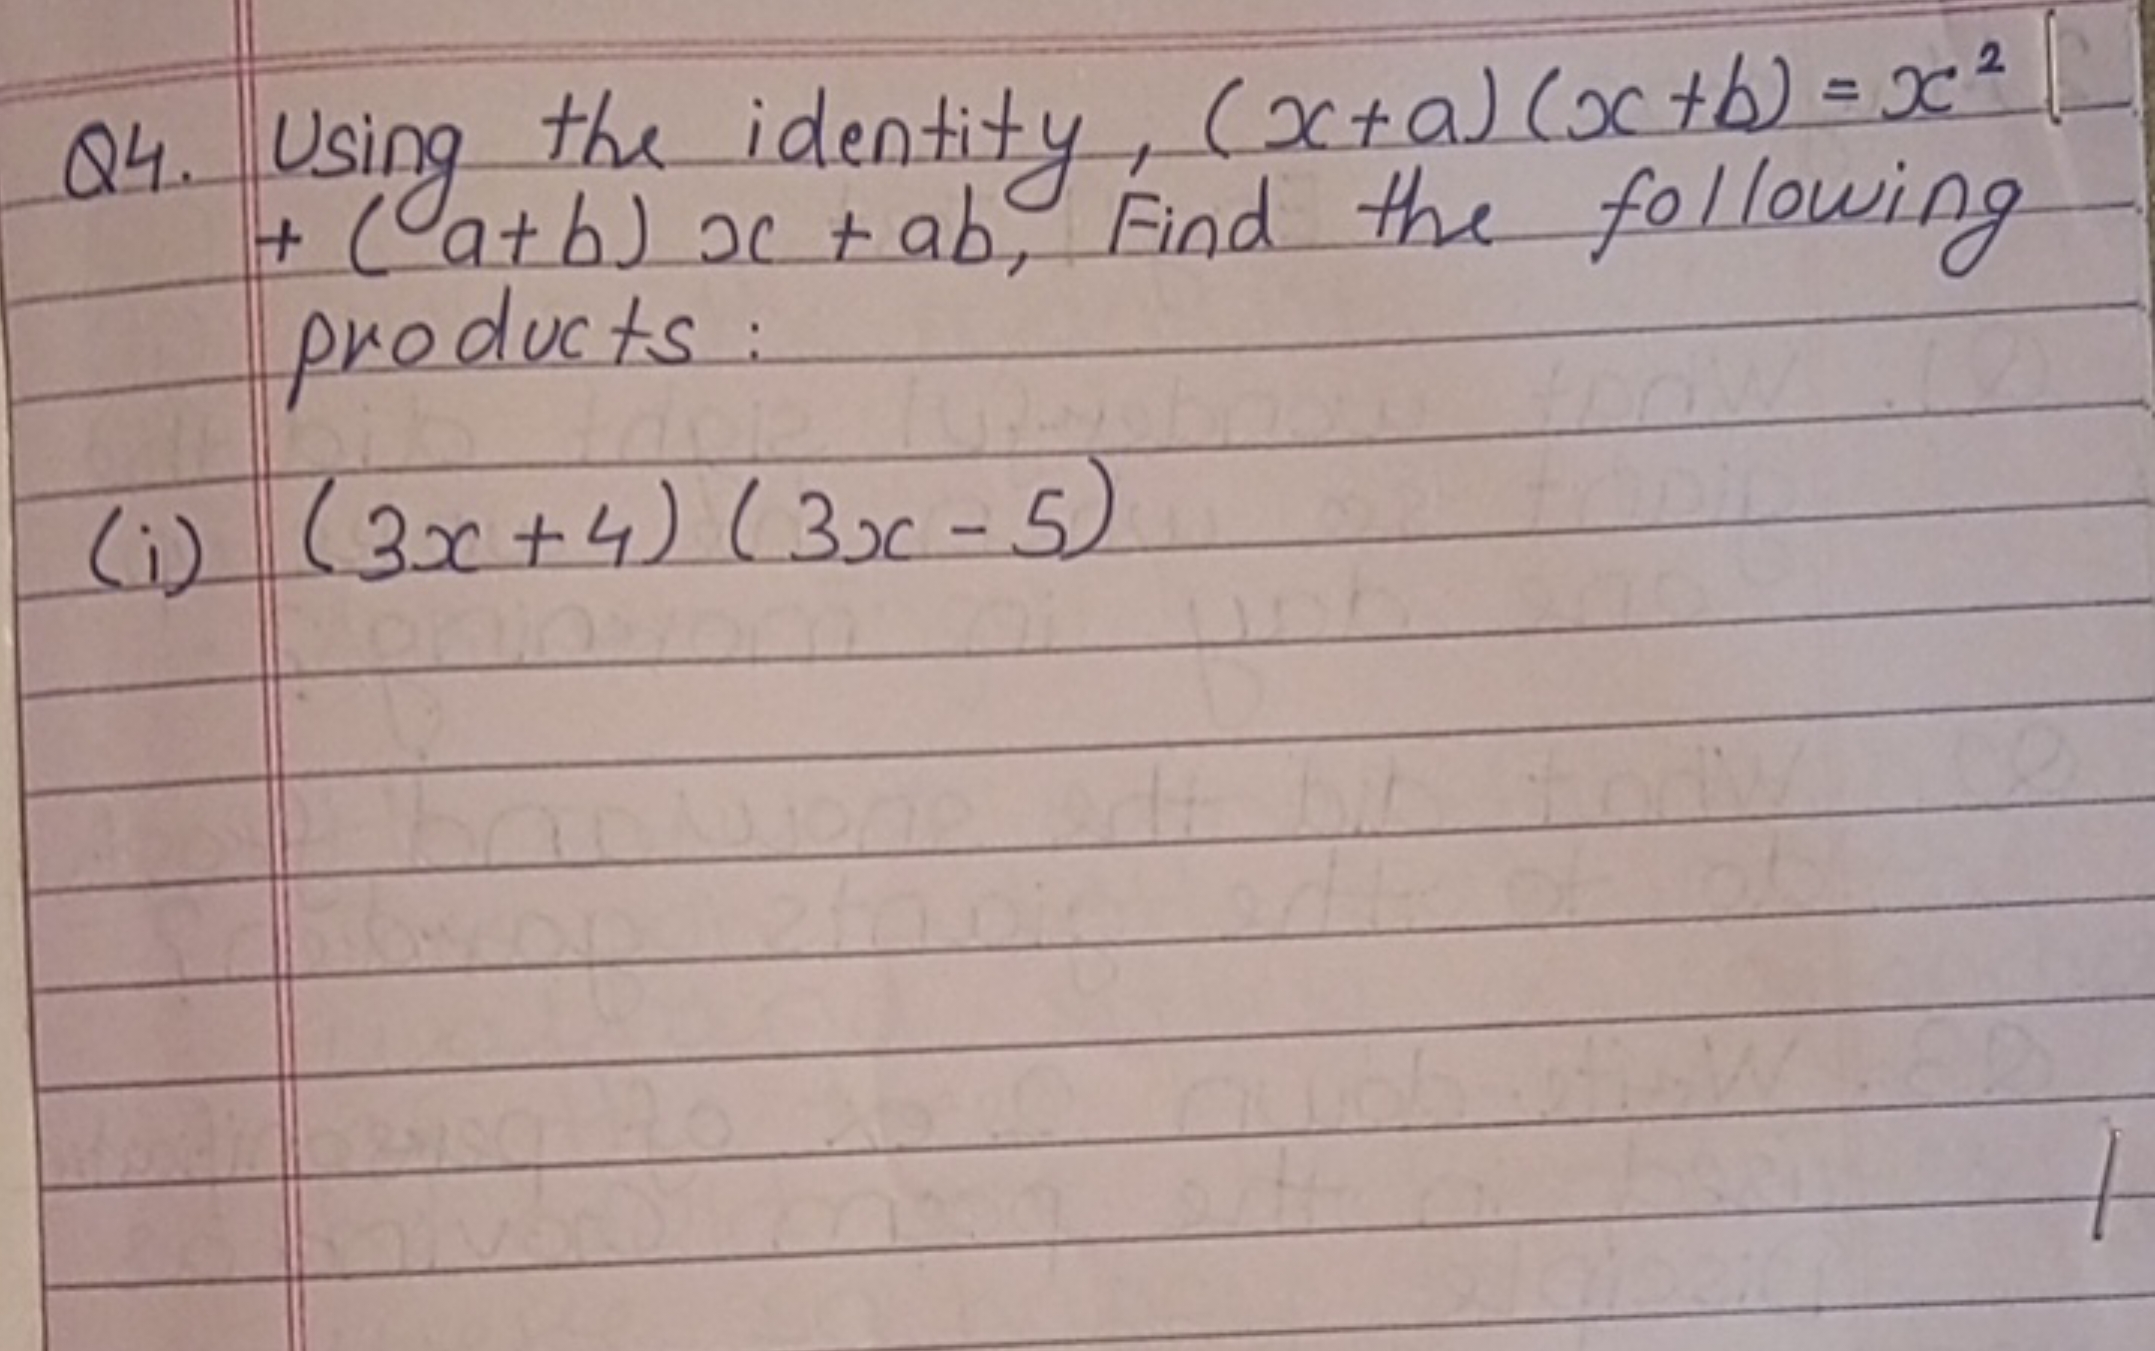 Q4. Using the identity, (x+a)(x+b) = x²
+ (a+b) x + ab, Find the following
products :
(i) (3x+4) (3x-5)